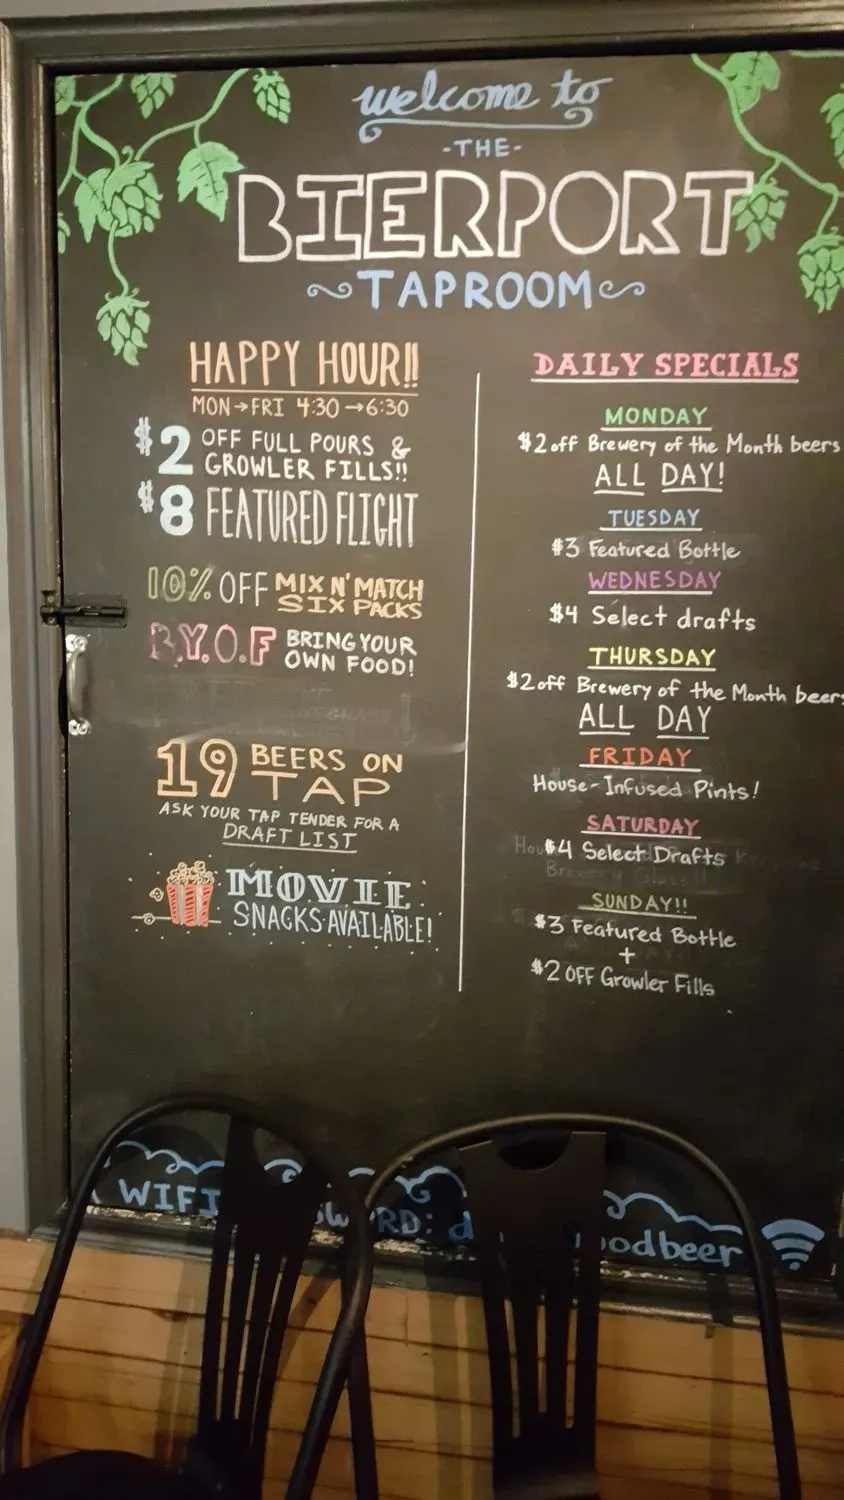 welcome to
-THE-
BIERPORT
TAPROOM
HAPPY HOUR!!
MON→FRI 4:30→6:30
$2 OFF FULL POURS &
GROWLER FILLS!!
$8 FEATURED FLIGHT
10% OFF MIX N' MATCH
SIX PACKS
B.Y.O.F BRING YOUR
OWN FOOD!
19 BEERS ON
TAP
ASK YOUR TAP TENDER FOR A
DRAFT LIST
MOVIE
SNACKS AVAILABLE!
DAILY SPECIALS
MONDAY
$2 off Brewery of the Month beers
ALL DAY!
TUESDAY
$3 Featured Bottle
WEDNESDAY
$4 Select drafts
THURSDAY
$2 off Brewery of the Month beers
ALL DAY
FRIDAY
House-Infused Pints!
SATURDAY
$4 Select Drafts
SUNDAY!!
$3 Featured Bottle
+
$2 OFF Growler Fills
WIFI